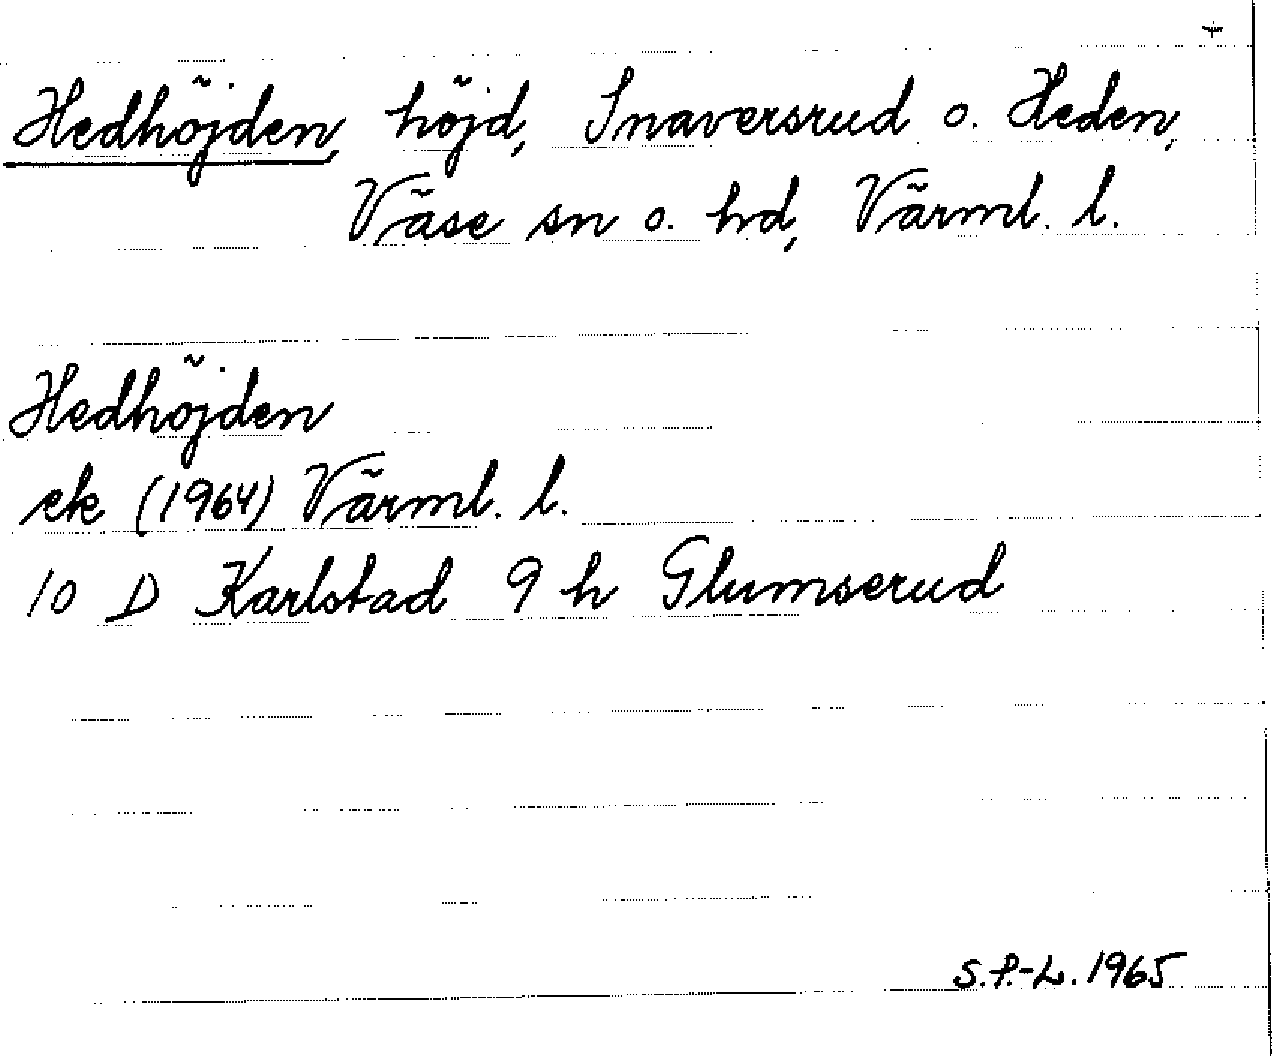 Hedhöjden, höjd, Snaversrud o. Heden,
Väse sn o. hd, Värml. l.
Hedhöjden
ek (1964) Värml. l.
10 D Karlstad 9 h Glumserud
S.P.-L. 1965